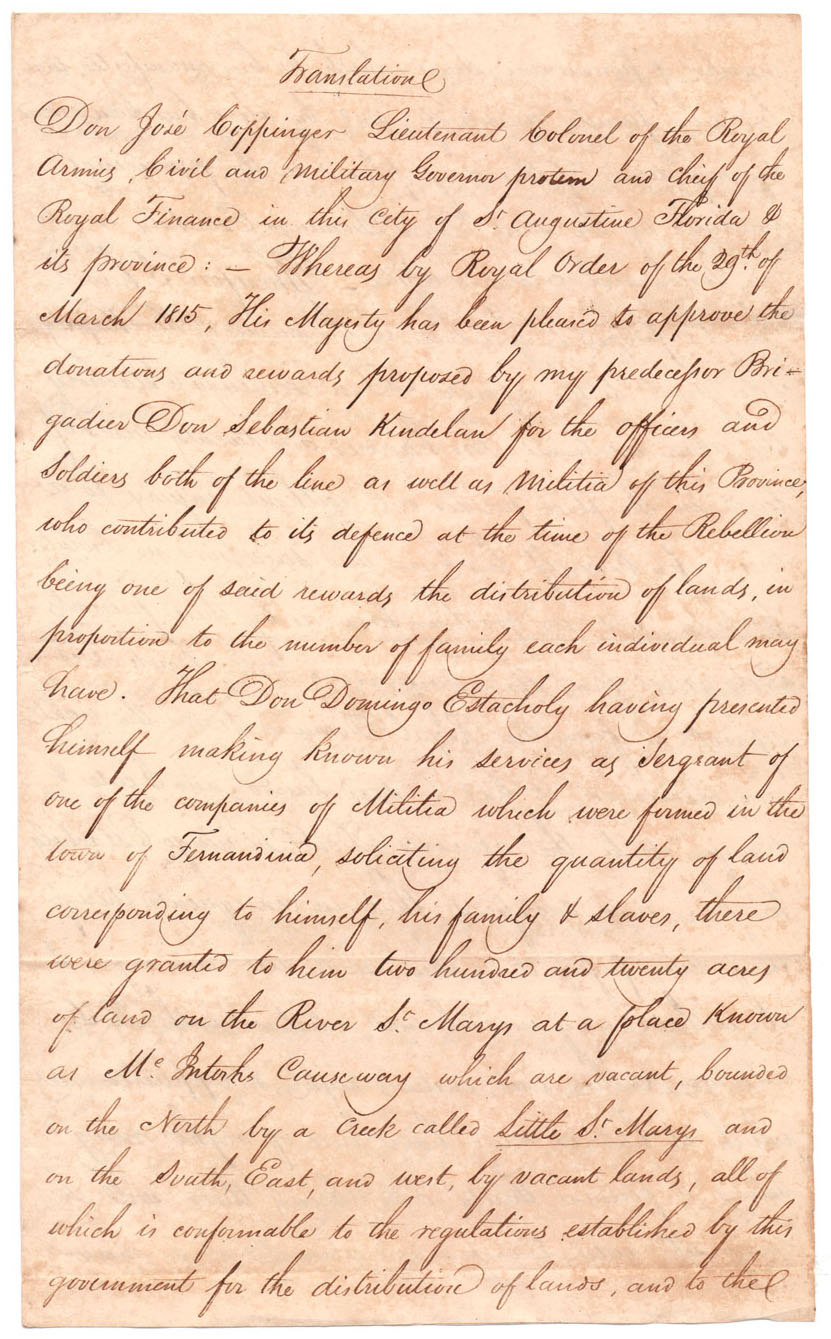 Translation
Don José Coppinger Lieutenant Colonel of the Royal
Armies, Civil and Military Governor protem and cheif of the
Royal Finance in this City of St. Augustine Florida &
its province: — Whereas by Royal Order of the 29th. of
March 1815, His Majesty has been pleased to approve the
donations and rewards proposed by my predecessor Bri-
gadier Don Sebastian Kindelan for the officers and
Soldiers both of the line as well as Militia of this Province,
who contributed to its defence at the time of the Rebellion
being one of said rewards the distribution of lands, in
proportion to the number of family each individual may
have. That Don Domingo Estacholy having presented
himself making known his services as Sergeant of
one of the companies of Militia which were formed in the
town of Fernandina, soliciting the quantity of land
corresponding to himself, his family & slaves, there
were granted to him two hundred and twenty acres
of land on the River St. Marys at a place Known
as Mc. Intoshs Causeway which are vacant, bounded
on the North by a Creek called Little St. Marys and
on the South, East, and west, by vacant lands, all of
which is conformable to the regulations established by this
government for the distribution of lands, and to the